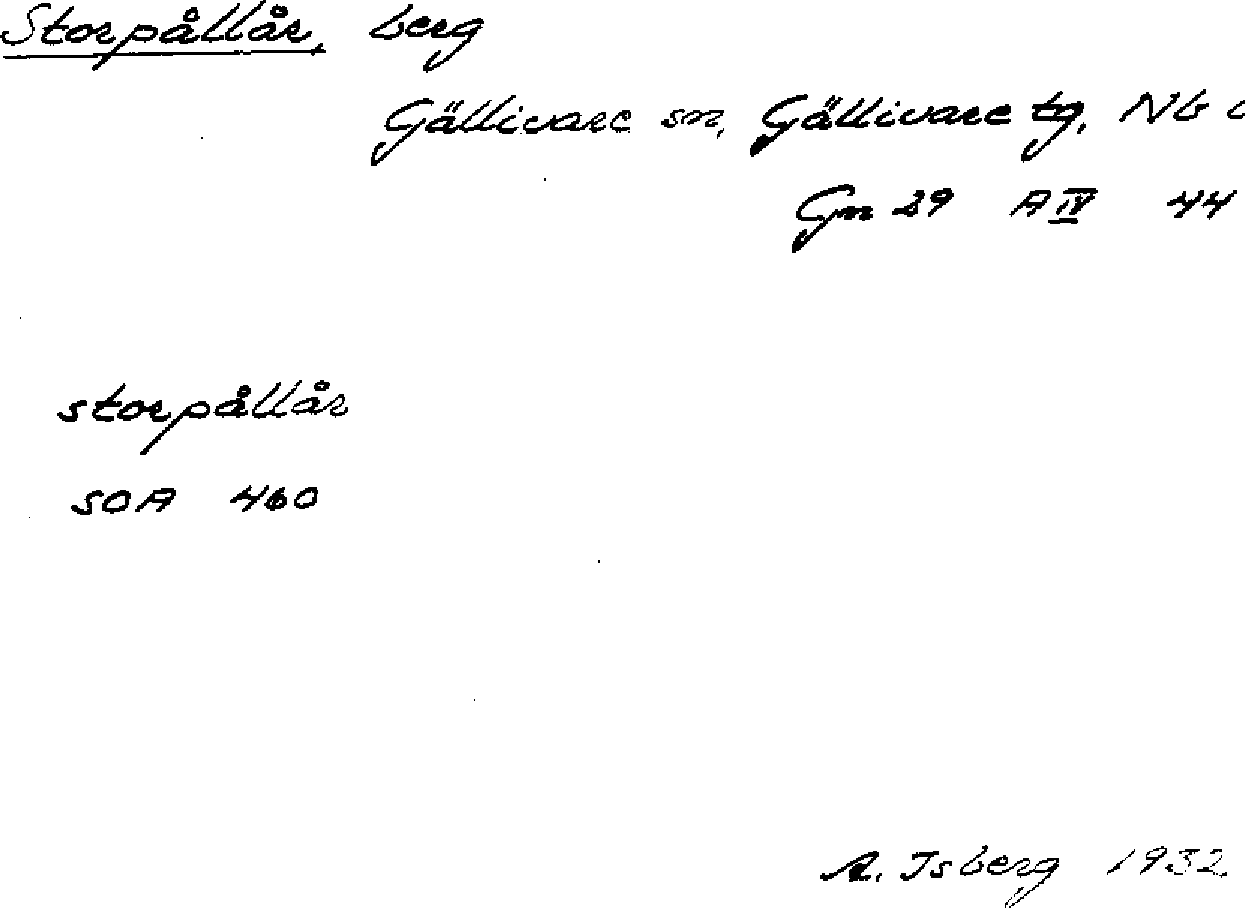 Storpållår, berg
Gällivare sn, Gällivare tg, Nb
Gn 29 A IV 44
storpållår
SOA 460
A. Isberg 1932